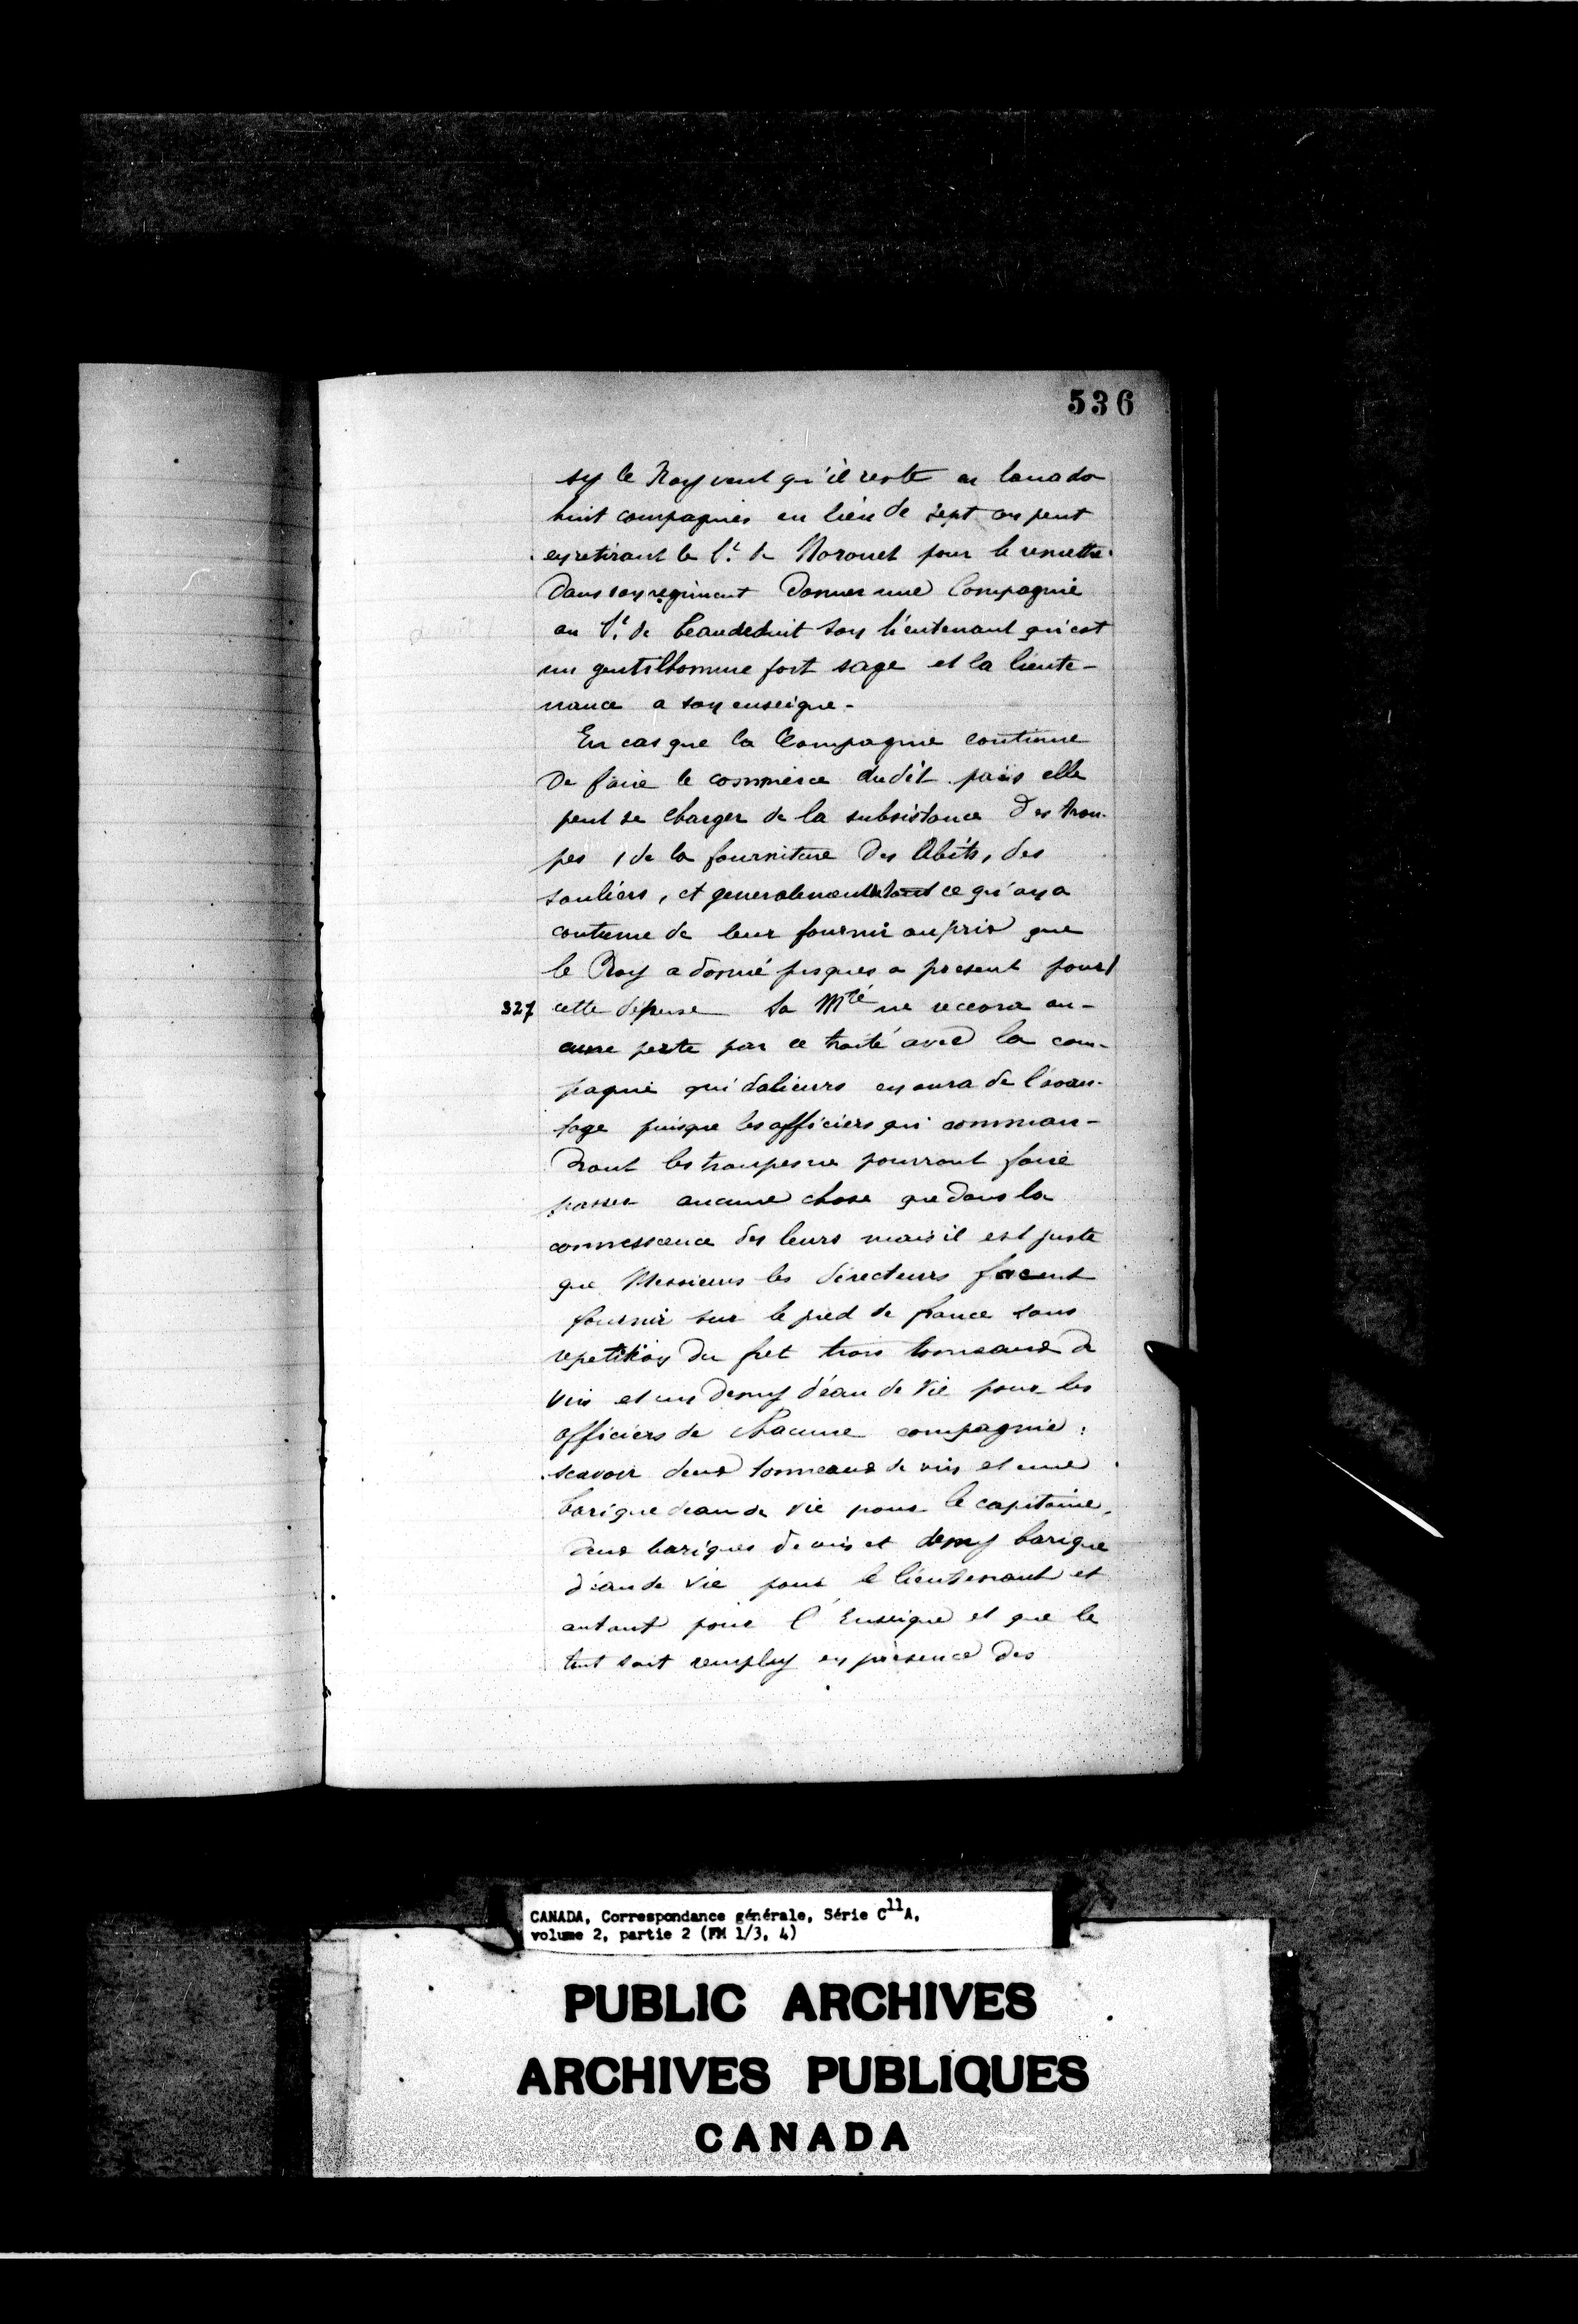 536
sy le Roy veut qu'il reste en Canada
huit compagnies en lieu de sept on peut
en retirant le Sr. de Norouet pour le remettre
dans son regiment donner une Compagnie
au Sr. de Beaudeduit son lieutenant qui est
un gentilhomme fort sage et la lieute-
nance a son enseigne -
En cas que la Compagnie continue
de faire le commerce dudit païs elle
peut se charger de la subsistance des trou-
pes, de la fourniture des abits, des
souliers, et generalement tout ce qu'on a
coutume de leur fournir au prix que
le Roy a donné jusques a present pour
327 cette dépense Sa Mté ne recevra au-
cune perte par ce traité avec la com-
pagnie qui dalieurs en aura de l'avan-
tage puisque les officiers qui comman-
dront les troupes ne pourront faire
passer aucune chose que dans la
connessance des leurs mais il est juste
que Messieurs les directeurs facent
fournir sur le pied de france sans
repetition du fret trois tonneaux de
vin et un demy d'eau de vie pour les
officiers de chacune compagnie:
scavoir deux tonneaux de vin et une
barique deau de vie pour le capitaine,
deux bariques de vin et demy barique
d'eau de vie pour le lieutenant et
autant pour l'Enseigne et que le
tout soit remply en presence des
CANADA, Correspondance générale, Série C11A,
volume 2, partie 2 (FM 1/3, 4)
PUBLIC ARCHIVES
ARCHIVES PUBLIQUES
CANADA